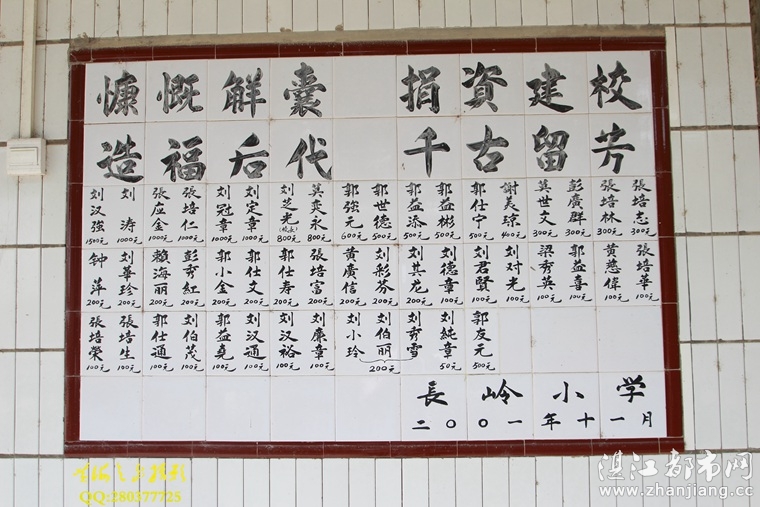 慷慨解囊 捐資建校
造福后代 千古留芳
刘汉强 1500元 刘涛 1000元 張应金 1000元 張培仁 1000元 刘冠章 1000元 刘定章 1000元 刘芝光(校長) 800元 莫奕永 800元 郭強元 600元 郭世德 500元 郭益添 500元 郭益彬 500元 郭仕宁 500元 謝美琼 400元 莫世文 300元 彭廣群 300元 張培林 300元 張培志 300元
钟萍 200元 刘華珍 200元 賴海丽 200元 彭秀红 200元 郭小金 200元 郭仕文 200元 郭仕寿 200元 張培富 200元 黄廣信 200元 刘彩芬 200元 刘其龙 200元 刘德章 100元 刘君賢 100元 刘对光 100元 梁秀英 100元 郭益喜 100元 黄慈偉 100元 張培華 100元
張培榮 100元 張培生 100元 郭仕通 100元 刘伯茂 100元 郭益堯 100元 刘汉通 100元 刘汉裕 100元 刘廉章 100元 刘小玲 刘伯丽 刘秀雪 200元 刘純章 50元 郭友元 500元
長岭小学
二〇〇一年十一月
QQ:280377725
湛江都市网
www.zhanjiang.cc